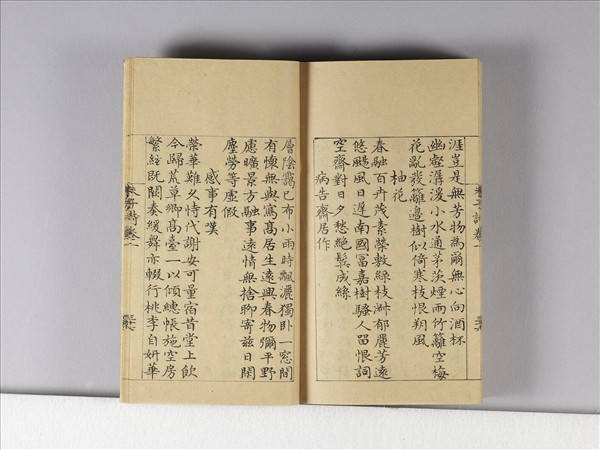 涯豈是無芳物為爾無心向酒杯
幽壑潺湲小水通茅茨煙雨竹籬空梅
花亂發籬邊樹似倚寒枝恨朔風
柚花
春融百卉茂素榮敷綠枝淋郁麗芳遠
悠颺風日遲南國冨嘉樹騷人留恨詞
空齋對日夕愁絕鬢成絲
病告齋居作
層陰靄已布小雨時飄灑獨卧一窓間
有懷無與寫髙居生遠興春物彌平野
慮曠景方融事遠情無捨聊寄茲日閑
塵勞等虛假
感事有嘆
榮華難久恃代謝安可量宿昔堂上飲
今歸荒草鄉髙臺一以傾繐帳施空房
繁絃既闋奏緩舞亦輟行桃李自妍華